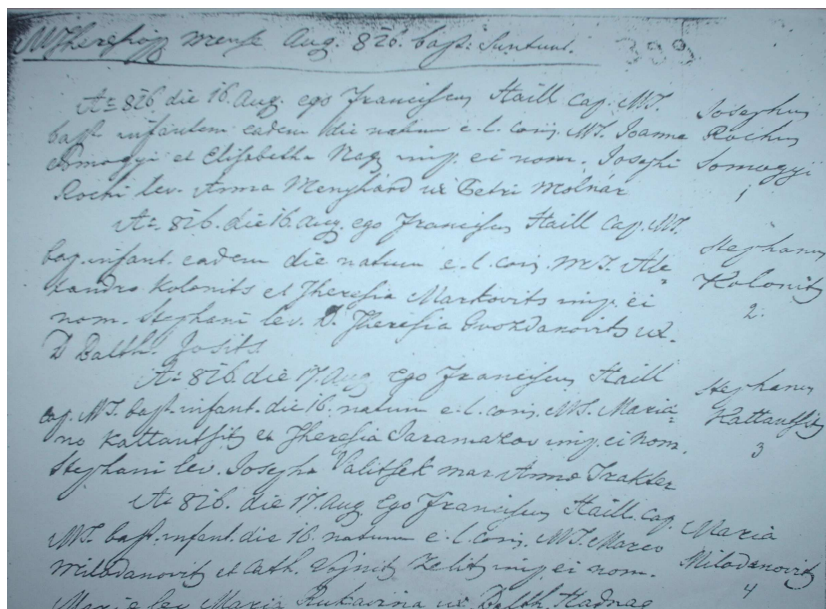 M Theresiop mense Aug. 826. bapt: Suntunt.
399
Ao 826 die 16. Aug. ego Franciscus Haill Cap. MT.
bapt. infantem eadem die natum e. l. coni. MT. Joanne
Somogyi et Elisabetha Nagy imp. ei nom. Josephi
Rochi lev. Anna Menyhárd ux Petri Molnár
Josephus
Rochus
Somogyi
1
Ao 826. die 16. Aug. ego Franciscus Haill Cap. MT.
bap. infant. eadem die natum e. l. coni. MT. Ale
xandro Kolonits et Theresia Markovits imp. ei
nom. Stephani lev. D. Theresia Gvozdanovits ux.
D Balth. Josits
Stephanus
Kolonits
2.
Ao 826. die 17. Aug ego Franciscus Haill
cap. MT. bapt. infant. die 16. natum e. l. coni. MT. Maria=
no Kattantsits et Theresia Jaramazov imp. ei nom.
Stephani lev. Josepha Valitsek mar Anna Trakter
Stephanus
Kattantsits
3
Ao 826. die 17. Aug ego Franciscus Haill. Cap.
MT. bapt. infant. die 16. natum e. l. coni. MT. Marco
Milodanovits et Cath. Vojnits Zelits imp. ei nom.
Mariæ lev Maria Rukavina ux. Balth. Hadnag
Maria
Milodanovits
4